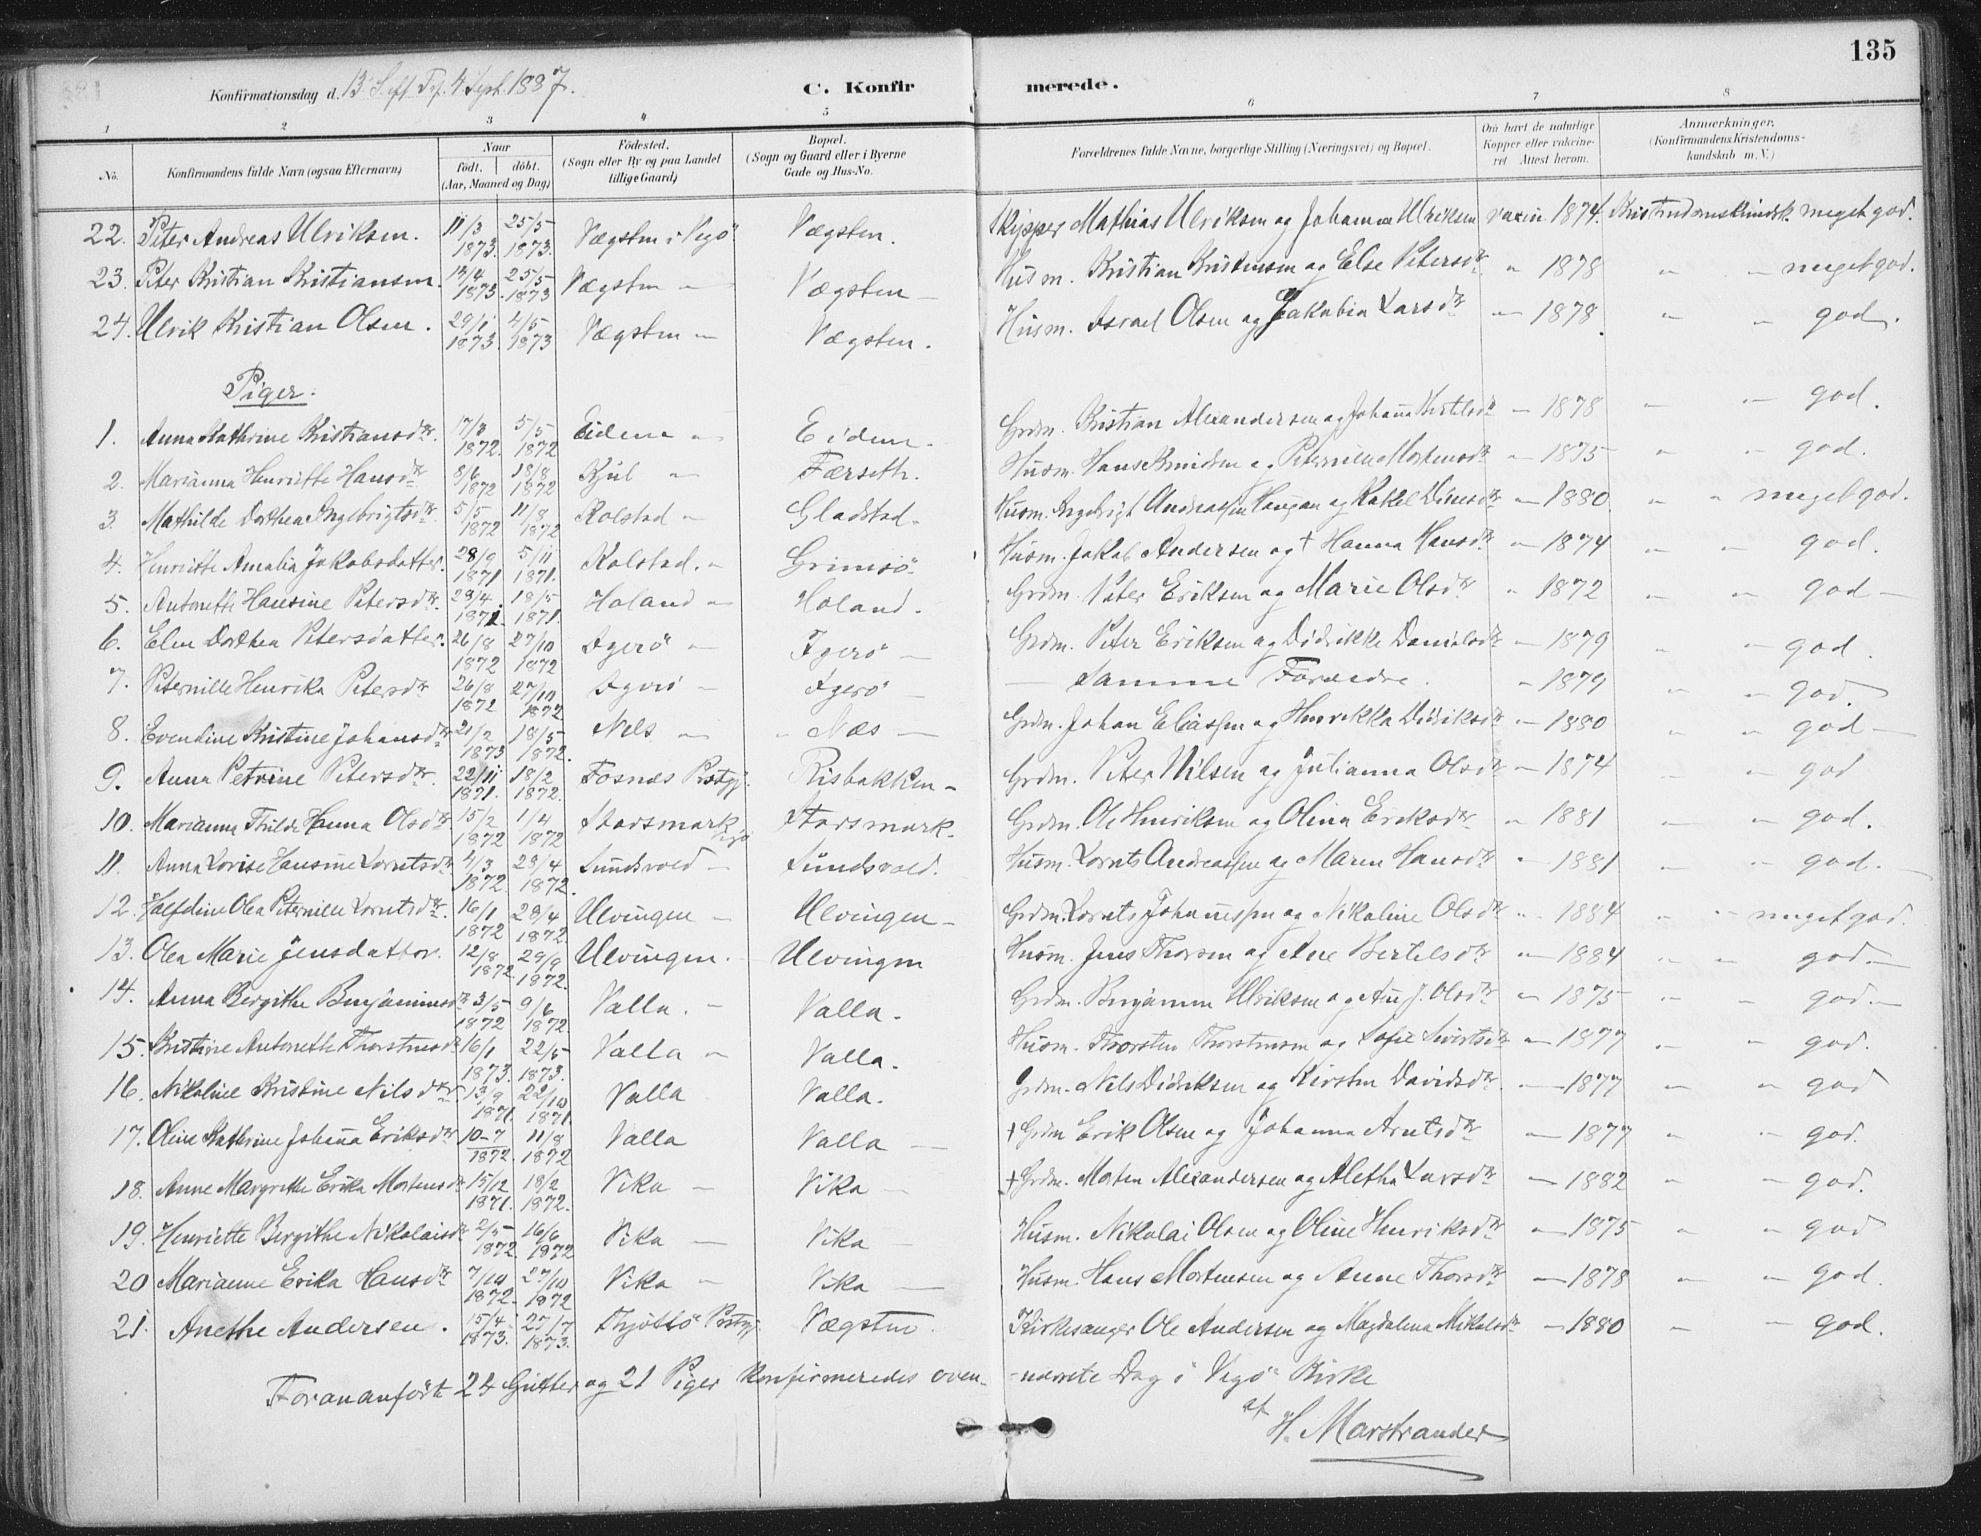 135
Konfirmationsdag d. 13 S. eft. Tr. 4 Sept. 1887. C. Konfirmerede.
1 2 3 4 5 6 7 8
No. Konfirmandens fulde Navn (ogsaa Efternavn) Naar født. døbt. (Aar, Maaned og Dag) Fødested. (Sogn eller By og paa Landet tillige Gaard) Bopæl. (Sogn og Gaard eller i Byerne Gade og Hus-No. Forældrenes fulde Navne, borgerlige Stilling (Næringsvei) og Bopæl. Om havt de naturlige Kopper eller vaccineret Attest herom. Anmærkninger. (Konfirmandens Kristendomskundskab m. V.)
22. Peter Andreas Ulriksen. 11/3 1873. 25/5 1873. Vægsten i Vegø Vægsten. Skipper Mathias Ulriksen og Johanna Ulriksen vaccin. 1874. Kristendomskundsk. meget god.
23. Peter Kristian Kristiansen. 13/4 1873. 25/5 1873 Vægsten — Vægsten — Husm. Kristian Kristensen og Else Petersdtr " 1878 " — meget god.
24. Ulrik Kristian Olsen. 29/1 1873. 4/5 1873 Vægsten — Vægsten. Husm. Israel Olsen og Jakobia Larsdtr — 1878 " " god.
Piger.
1. Anna Kathrine Kristiansdtr. 17/3 1872. 5/5 1872 Eidem — Eidem. Grdm. Kristian Alexandersen og Johanna Bertelsdtr — 1878 — — god.
2. Marianna Henriette Hansdtr 8/6 1872 18/8 1872 Kjul — Færseth. Husm. Hans Knudsen og Peternille Mortensdtr — 1875 " — god.
3. Mathilde Dorthea Ingebrigtsdtr. 5/5 1872 11/8 1872 Rolstad — Gladstad. Husm. Ingebrigt Andreassen Haugan og Rakel Dinesdtr — 1880 " " meget god.
4. Henriette Amalia Jakobsdatter. 28/9 1871 5/11 1871. Kolstad. " Grimsø Husm. Jakob Andersen og † Hanna Hansdtr — 1874 " — god.
5. Antonette Hansine Petersdtr. 29/4 1871 18/5 1871. Holand — Holand. Grdm. Peter Eriksen og Marie Olsdtr " 1872 " " god —
6. Elen Dorthea Petersdatter. 26/8 1872 27/10 1872 Igerø — Igerø — Grdm. Peter Eriksen og Didrikke Danielsdtr — 1879 " — god.
7. Peternille Henrika Petersdtr 26/8 1872 27/10 1872 Igerø — Igerø — — Samme Forældre. " 1879 " " god.
8. Evendine Kristine Johansdtr 21/2 1873 18/5 1872. Nels — " Næs — Grdm. Johan Eliassen og Henrikka Didriksdtr — 1880 " " god —
9. Anna Petrine Petersdtr. 22/11 1871. 18/2 1872. Fosnæs Prstgj. Risbakken — Grdm. Peter Nilsen og Julianna Olsdtr — 1874 — " god
10. Marianna Thilde Hanna Olsdtr. 15/2 1872 1/4 1872 Storsmark Vegø Storsmark. Grdm. Ole Henriksen og Olina Eriksdtr " 1881 — " god.
11. Anna Lovise Hansine Lorntsdtr 4/3 1872. 29/4 1872. Sundsvold — Sundsvold. Husm. Lornts Andreassen og Maren Hansdtr " 1881 — " god.
12. Halfdine Olea Peternille Lorntsdtr. 16/1 1872 29/4 1872. Ulvingen — Ulvingen — Grdm. Lornts Johannessen og Nikoline Olsdtr " 1884 " " meget god.
13. Olea Marie Jensdatter. 12/8 1872. 29/9 1872. Ulvingen. — Ulvingen Husm. Jens Thorsen og Ane Bertelsdtr — 1884 — — god —
14. Anna Bergithe Benjaminsdtr 3/5 1872 9/6 1872. Valla. — Valla. Grdm. Benjamin Ulriksen og Ane J. Olsdtr " 1875 " — god. —
15. Kristine Antonette Thorstensdtr 16/1 1873. 22/5 1873. Valla — Valla. Husm. Thorsten Thorstensen og Sofie Sivertsdtr — 1877 — " god.
16. Nikoline Kristine Nilsdtr. 13/9 1871. 22/10 1871. Valla Valla. Grdm. Nils Didriksen og Kirsten Davidsdtr. — 1877 — " god
17. Oline Kathrine Johanna Eriksdtr 10-7 1872. 11/8 1872 Valla Valla — † Grdm Erik Olsen og Johanna Arntsdtr — 1877 " — god.
18. Anne Margrethe Erika Mortensdtr 15/12 1871. 18/2 1872. Vika — Vika — † Grdm. Morten Alexandersen og Aletha Larsdtr — 1882 " — god.
19. Henriette Bergithe Nikolaisdtr 2/5 1872. 16/6 1872 Vika — Vika Husm. Nikolai Olsen og Oline Henriksdtr — 1875 " — god
20 Marianne Erika Hansdtr 7/10 1872. 27/10 1872 Vika — Vika — Husm. Hans Mortensen og Anne Thorsdtr — 1878 — — god.
21. Anethe Andersen. 15/4 1873. 27/7 1873. Thjøttø Prstgj. Vægsten. Kirkesanger Ole Andersen og Magdalena Mikalsdtr — 1880 — — god.
Forananførte 24 Gutter og 21 Piger konfirmeredes ovennævnte Dag i Vegø Kirke
af H. Marstrander